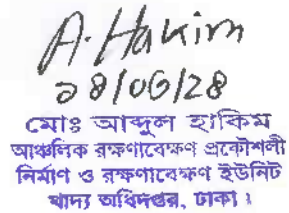 A. Hakim
১৪/০৬/২৪
মোঃ আব্দুল হাকিম
আঞ্চলিক রক্ষণাবেক্ষণ প্রকৌশলী
নির্মাণ ও রক্ষণাবেক্ষণ ইউনিট
খাদ্য অধিদপ্তর, ঢাকা।